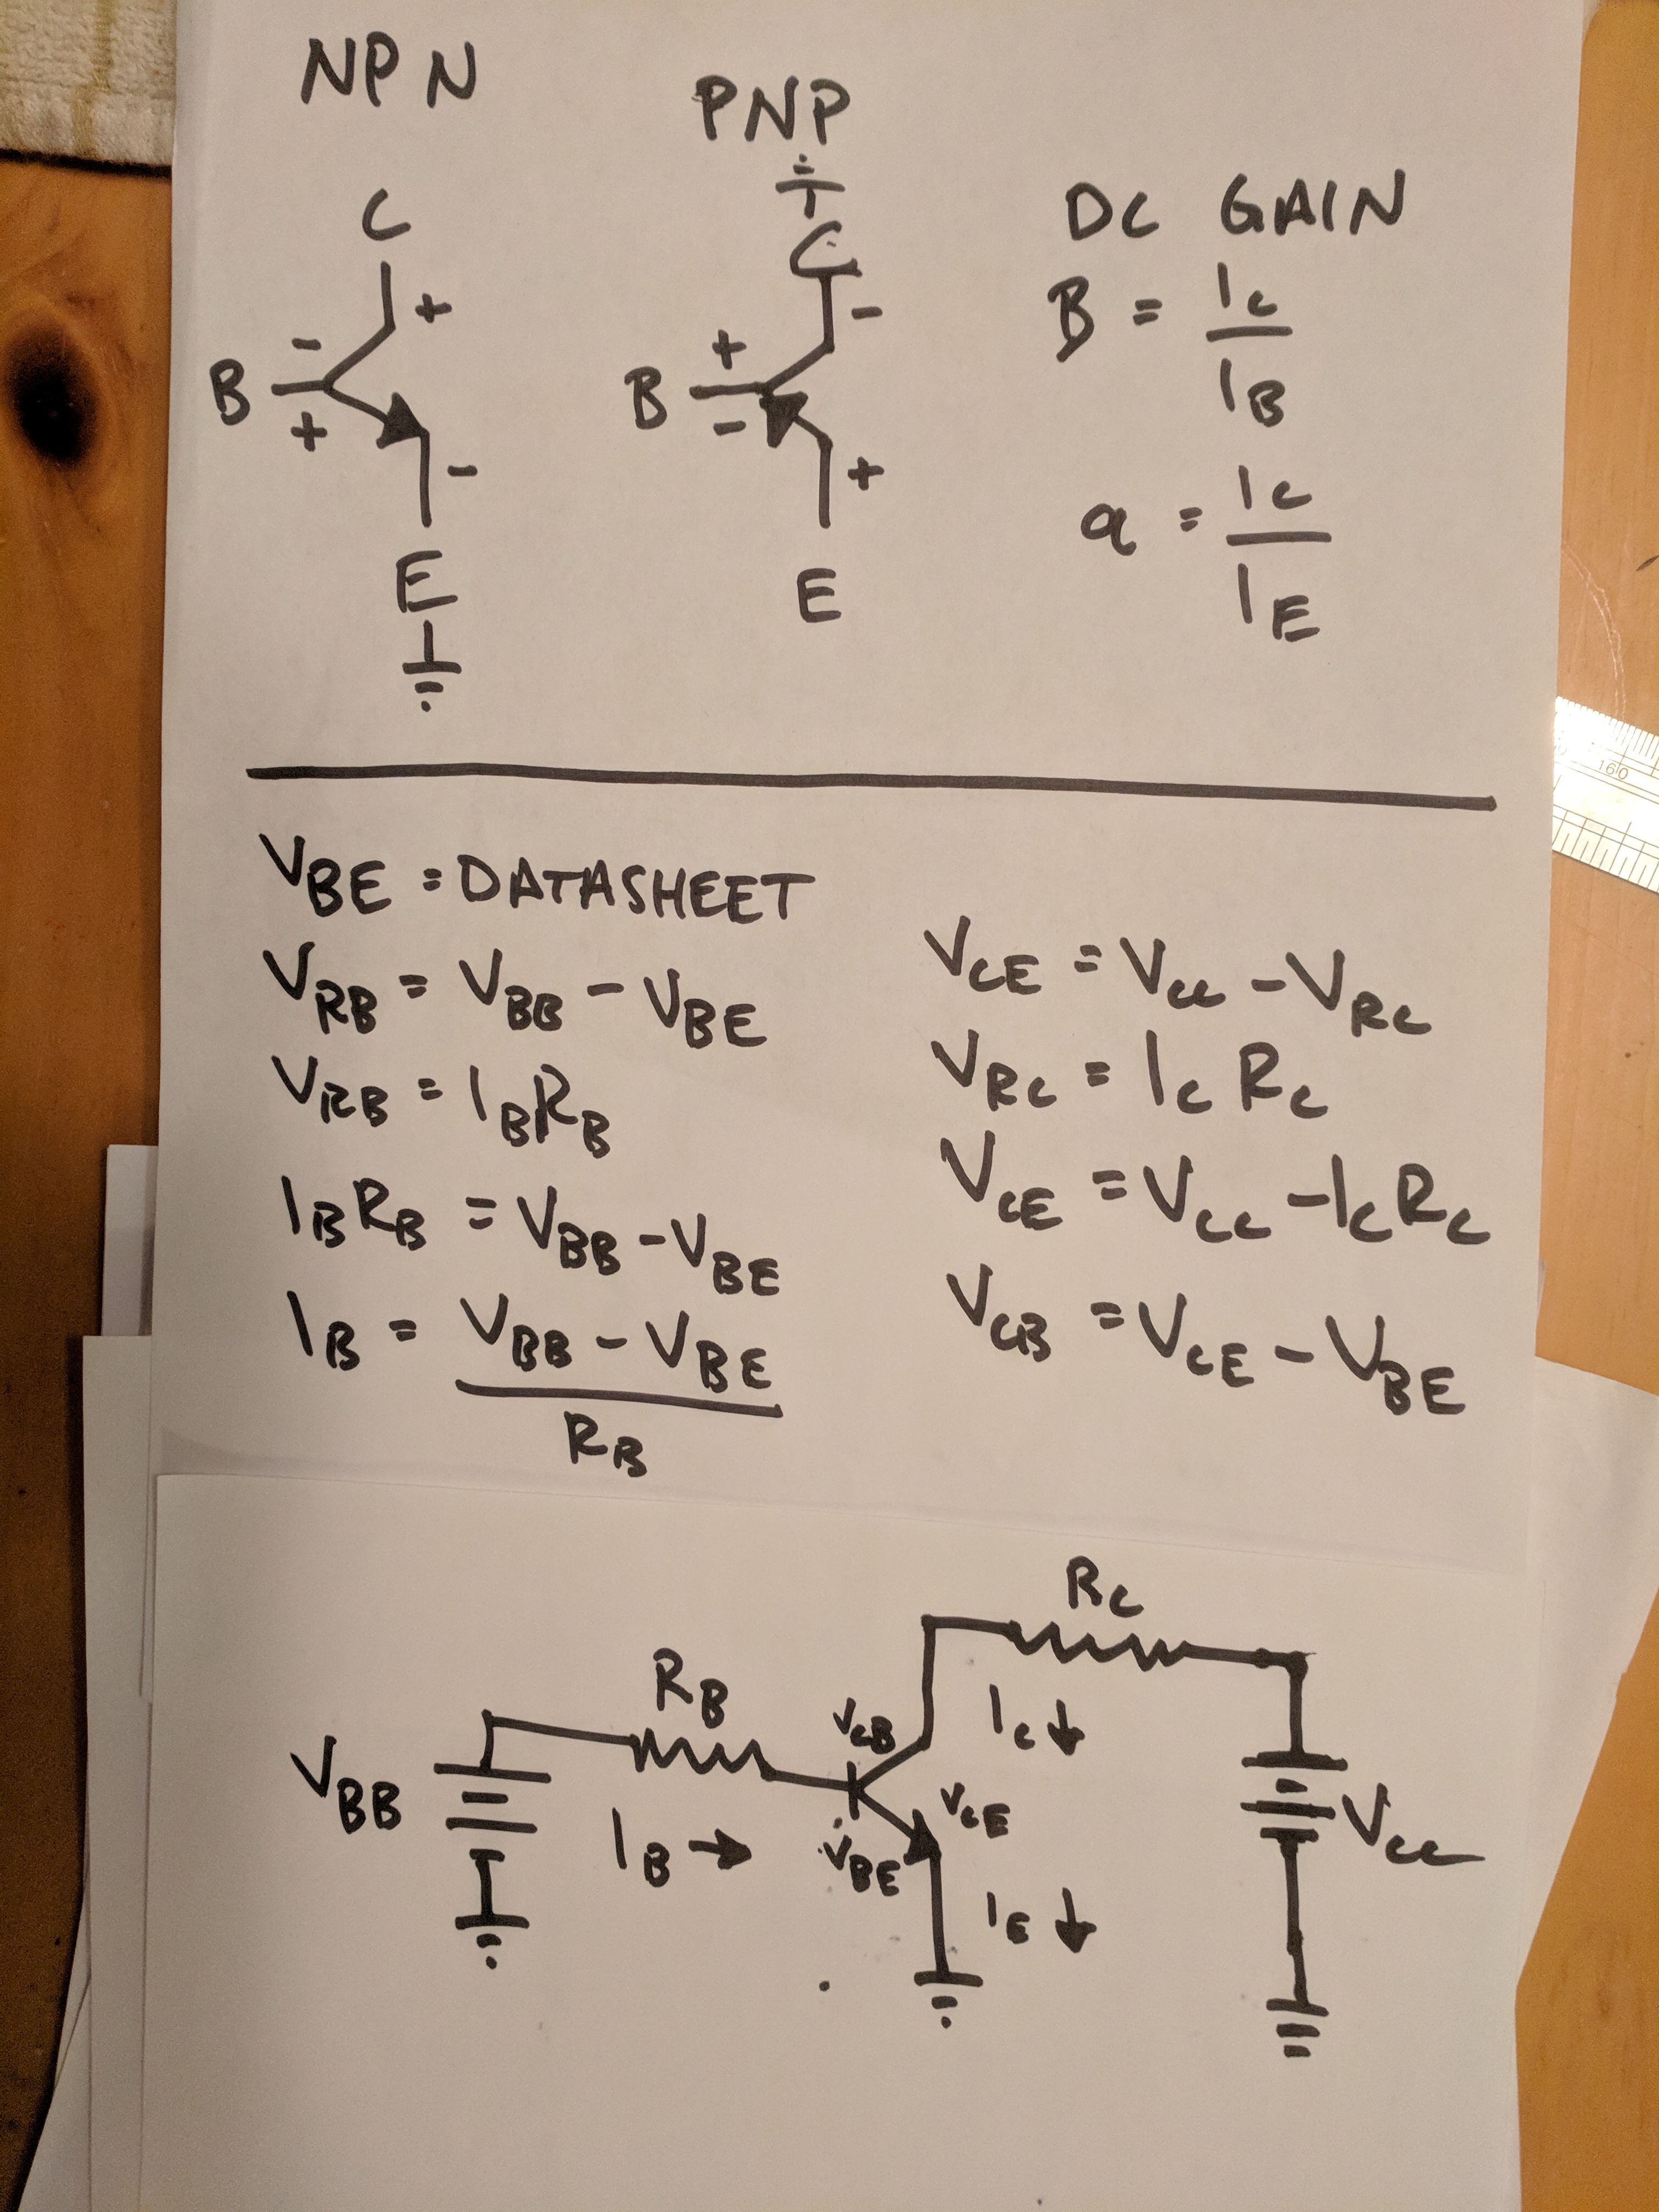 NPN
PNP
C
+
-
B
+
-
E
C
-
+
B
-
+
E
DC GAIN
B = IC / IB
a = IC / IE
VBE = DATASHEET
VRB = VBB - VBE
VRB = IBRB
IBRB = VBB - VBE
IB = VBB - VBE / RB
VCE = VCC - VRC
VRC = IC RC
VCE = VCC - IC RC
VCB = VCE - VBE
RC
RB
VBB
IB →
VCB
VCE
VBE
IC ↓
IE ↓
VCC
160